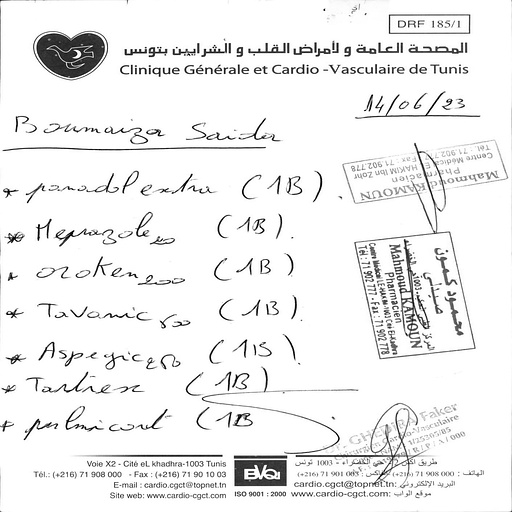 DRF 185/1
المصحة العامة و لأمراض القلب و الشرايين بتونس
Clinique Générale et Cardio -Vasculaire de Tunis
14/06/23
Boumaiza Saida
* panadol extra (1B).
* Meprazole 20 (1B).
* oroken 200 (1B)
* Tavanic 500 (1B).
* Aspegic 250 (1B).
* Tartrex (1B)
* pulmicort (1B
Mahmoud KAMOUN
Pharmacien
Centre Médical E. HAKIM Ibn Zohr
Tél.: 71.902.777 - Fax : 71.902.778
محمود كمون
صيدلي
Mahmoud KAMOUN
Pharmacien
Tél.: 71 902 777 - Fax : 71 902 778
Faker
Cardio-Vasculaire
Voie X2 - Cité eL khadhra-1003 Tunis
Tél.: (+216) 71 908 000 - Fax : (+216) 71 90 10 03
E-mail : cardio.cgct@topnet.tn
Site web: www.cardio-cgct.com
ISO 9001 : 2000
الهاتف : 000 908 71 (216+)
البريد الإلكتروني: cardio.cgct@topnet.tn
موقع الواب: www.cardio-cgct.com